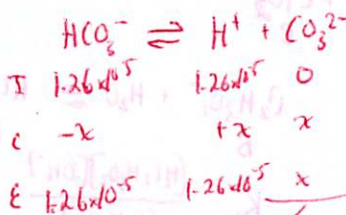 HCO₃⁻ ⇌ H⁺ + CO₃²⁻
I 1.26x10⁻⁵ 1.26x10⁻⁵ 0
C -x +x x
E 1.26x10⁻⁵ 1.26x10⁻⁵ x